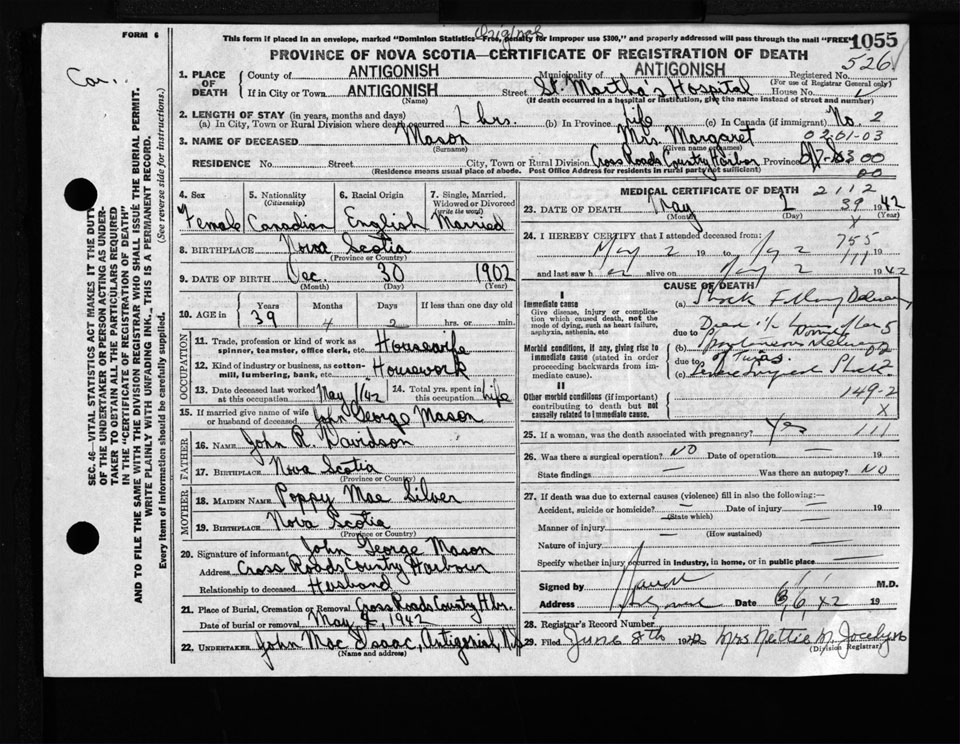 FORM 6
This form if placed in an envelope, marked "Dominion Statistics—Free, penalty for improper use $300," and properly addressed will pass through the mail "FREE"
Original
1055
PROVINCE OF NOVA SCOTIA—CERTIFICATE OF REGISTRATION OF DEATH
526
Car.
1. PLACE OF DEATH
County of ANTIGONISH Municipality of ANTIGONISH Registered No.
(For use of Registrar General only)
If in City or Town ANTIGONISH Street St. Martha's Hospital House No.
(Name) (If death occurred in a hospital or institution, give the name instead of street and number)
2. LENGTH OF STAY (in years, months and days)
(a) In City, Town or Rural Division where death occurred 2 hrs. (b) In Province Life (c) In Canada (if immigrant) No. 2
3. NAME OF DECEASED Mason Mrs. Margaret 0201-03
(Surname) (Given or names)
RESIDENCE No. Street City, Town or Rural Division Cross Roads Country Harbor Province N.S. 0300
(Residence means usual place of abode. Post Office Address for residents in rural parts not sufficient) 00
4. Sex Female
5. Nationality (Citizenship) Canadian
6. Racial Origin English
7. Single, Married, Widowed or Divorced (write the word) Married
8. BIRTHPLACE Nova Scotia
(Province or Country)
9. DATE OF BIRTH Dec. 30 1902
(Month) (Day) (Year)
10. AGE in Years 39 Months 4 Days 2 If less than one day old hrs. or min.
OCCUPATION
11. Trade, profession or kind of work as spinner, teamster, office clerk, etc. Housewife
12. Kind of industry or business, as cotton-mill, lumbering, bank, etc. Housework
13. Date deceased last worked at this occupation May 1/42
14. Total yrs. spent in this occupation Life
15. If married give name of wife or husband of deceased John George Mason
FATHER
16. NAME John R. Davidson
17. BIRTHPLACE Nova Scotia
(Province or Country)
MOTHER
18. MAIDEN NAME Poppy Mae Silver
19. BIRTHPLACE Nova Scotia
(Province or Country)
20. Signature of informant John George Mason
Address Cross Roads Country Harbour
Relationship to deceased Husband
21. Place of Burial, Cremation or Removal Cross Roads Country Hbr.
Date of burial or removal May 1942
22. UNDERTAKER John MacIsaac, Antigonish, N.S.
(Name and address)
MEDICAL CERTIFICATE OF DEATH 2112
23. DATE OF DEATH May 2 39 1942
(Month) (Day) (Year)
X
24. I HEREBY CERTIFY that I attended deceased from: 755
May 2 19 to May 2 111 19
and last saw h er alive on May 2 1942
CAUSE OF DEATH
I
Immediate cause
Give disease, injury or complication which caused death, not the mode of dying, such as heart failure, asphyxia, asthenia, etc
(a) Shock Following Delivery
due to
Morbid conditions, if any, giving rise to immediate cause (stated in order proceeding backwards from immediate cause).
(b) Delivery
due to of Twins.
(c) Shock
II
Other morbid conditions (if important) contributing to death but not causally related to immediate cause.
149-2
X
25. If a woman, was the death associated with pregnancy? Yes 111
26. Was there a surgical operation? NO Date of operation 19
State findings Was there an autopsy? NO
27. If death was due to external causes (violence) fill in also the following:
Accident, suicide or homicide? Date of injury 19
(State which)
Manner of injury
(How sustained)
Nature of injury
Specify whether injury occurred in industry, in home, or in public place
Signed by M.D.
Address Date 6/6/42 19
28. Registrar's Record Number
29. Filed June 8th 1942 Mrs Nettie M. Jocelyn
(Division Registrar)
SEC. 46—VITAL STATISTICS ACT MAKES IT THE DUTY
OF THE UNDERTAKER OR PERSON ACTING AS UNDER-
TAKER TO OBTAIN ALL THE PARTICULARS REQUIRED
IN THE "CERTIFICATE OF REGISTRATION OF DEATH"
AND TO FILE THE SAME WITH THE DIVISION REGISTRAR WHO SHALL ISSUE THE BURIAL PERMIT.
WRITE PLAINLY WITH UNFADING INK—THIS IS A PERMANENT RECORD.
Every item of information should be carefully supplied. (See reverse side for instructions.)